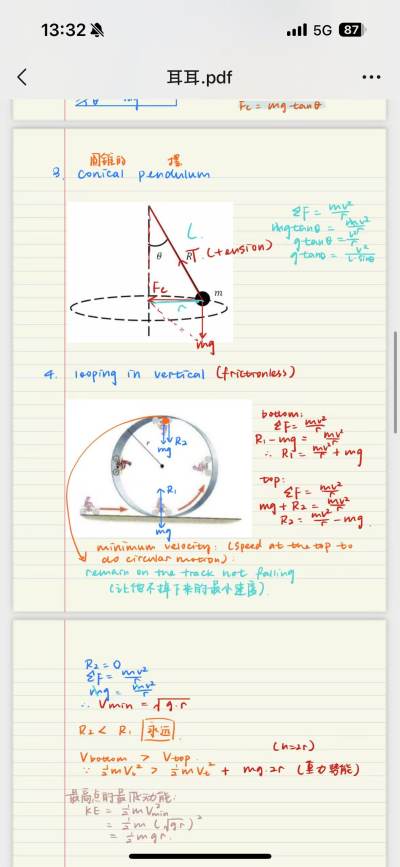 13:32
5G 87
耳耳.pdf
Fc = mg·tanθ
圆锥的 摆
3. conical pendulum
L
θ
T (tension)
Fc
r
m
mg
ΣF = mv²/r
mg tanθ = mv²/r
g·tanθ = v²/r
g·tanθ = v²/L·sinθ
4. looping in vertical (frictionless)
r
R₂
mg
R₁
mg
bottom:
ΣF = mv²/r
R₁ - mg = mv²/r
∴ R₁ = mv²/r + mg
top:
ΣF = mv²/r
mg + R₂ = mv²/r
R₂ = mv²/r - mg.
minimum velocity: (speed at the top to
do circular motion):
remain on the track not falling
(让他不掉下来的最小速度).
R₂ = 0
ΣF = mv²/r
mg = mv²/r
∴ Vmin = √g·r
R₂ < R₁ 永远
Vbottom > Vtop.
(h=2r)
∵ ½mV₁² > ½mVt² + mg·2r (重力势能)
最高点的最低动能:
KE = ½mV²min
= ½m(√gr)²
= ½mgr.